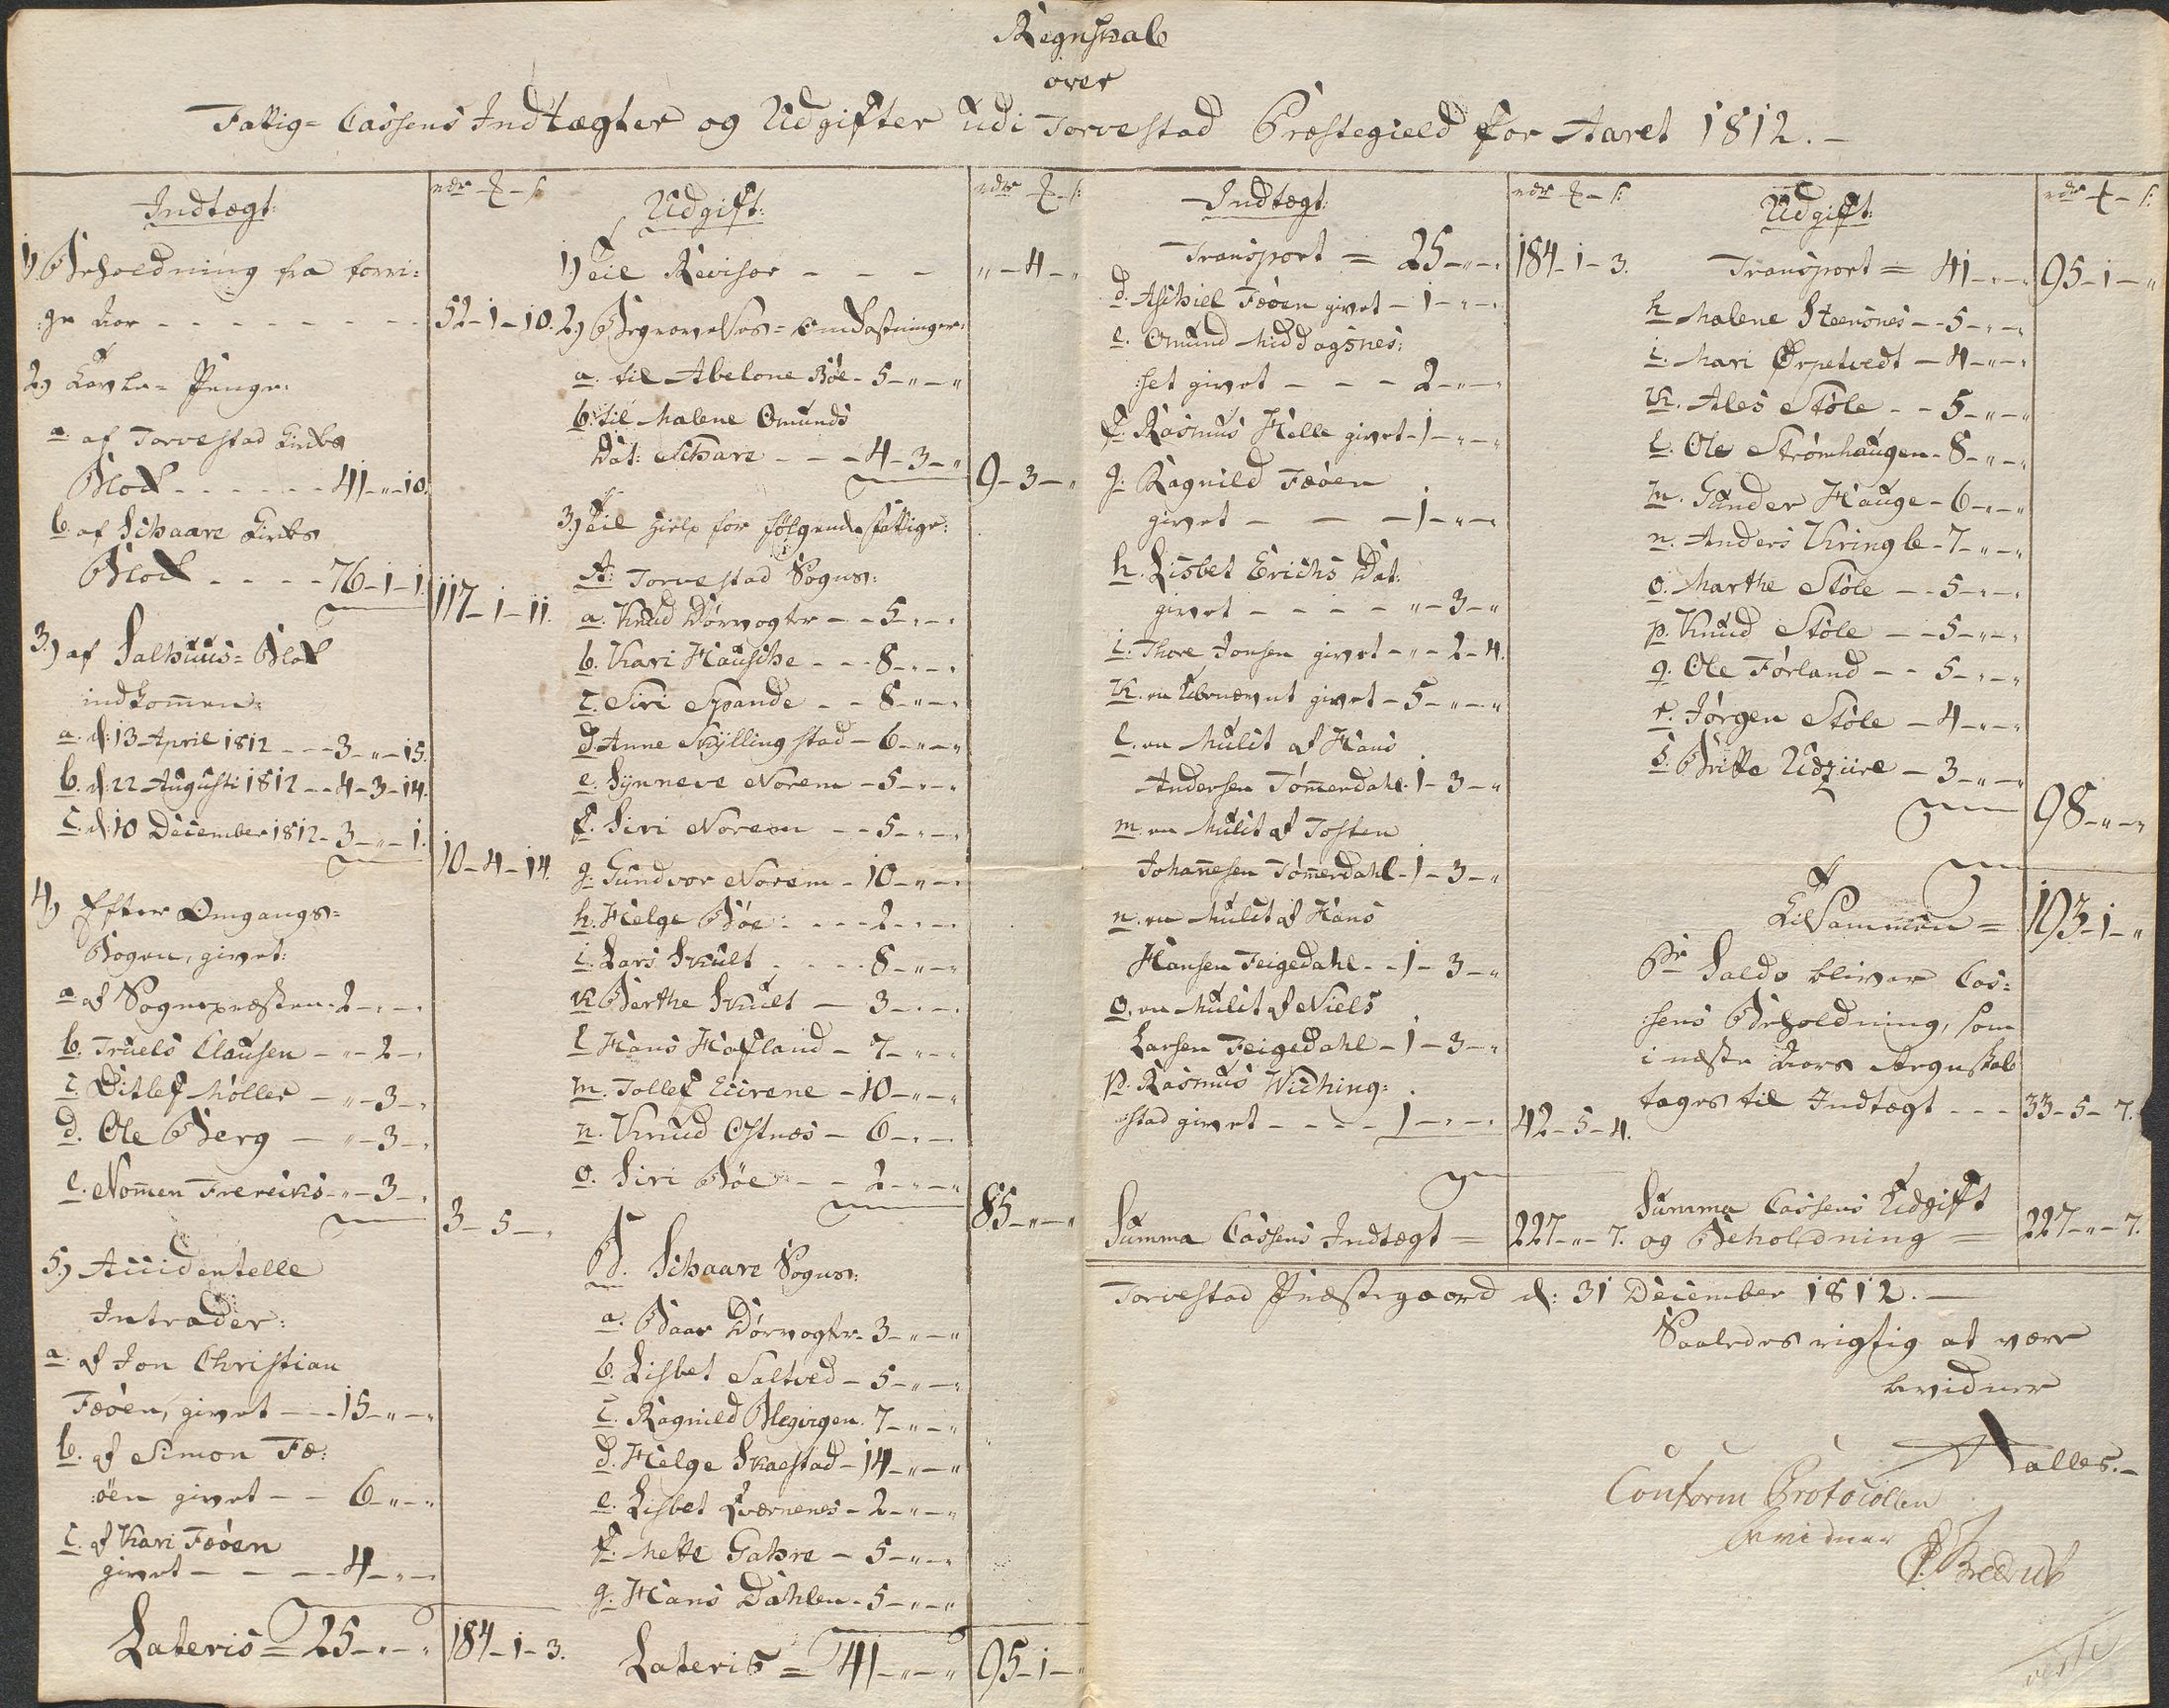 Regnskab
over
Fattig=Cassens Indtægter og Udgifter udi Torvestad Præstegield for Aaret 1812.-
Indtægt:
rdr ƶ - s:
1) Beholdning fra forri:
:ge Aar - - - - - - - - 52-1-10.
2) Tavle-Penge:
a. af Torvestad Kirkes
Blok - - - - - - 41-"-10.
b. af Schaare Kirkes
Blok - - - - - 76-1-1. 117-1-11.
3.) af Salhuus-Blok
indkommen:
a. d: 13 April 1812 - - - 3-"-15.
b. d: 22 Augusti 1812 - - 4-3-14.
c. d: 10 December 1812 - 3-"-1. 10-4-14.
4.) Efter Omgangs=
Bogen, givet:
a. af Sognepræsten - 2-"-"
b. Truels Clausen - "-2-"
c. Ditlef Møller - "-3-"
d. Ole Berg - "-3-"
e. Nomen Frereiks - "-3-" 3-5-"
5.) Accidentelle
Intrader:
a. af Jon Christian
Fæøen, givet - - - 15-"-"
b. af Simon Fæ:
:øen givet - - 6-"-"
c. af Kari Fæøen
givet - - - - 4-"-"
Lateris = 25-"-" 184-1-3.
Udgift:
rdr ƶ - s:
1.) Til Revisor - - - "-4-"
2.) Begravelses-Omkostninger:
a. til Abelone Bøe - 5-"-"
b. til Malene Omunds
Dat: Schare - - - 4-3-" 9-3-"
3.) Til Hielp for følgende fattige:
A: Torvestad Sogn:
a. Knud Dørvogter - - 5-"-"
b. Kari Hausche - - - 8-"-"
c. Siri Spande - - 8-"-"
d. Anne Skyllingstad - 6-"-"
e. Synneve Norem - 5-"-"
f. Siri Norem - - 5-"-"
g. Gundvor Norem - 10-"-"
h. Helge Bøe - - - - 2-"-"
i. Lars Skult - - - - 8-"-"
k. Berthe Skult - 3-"-"
l. Hans Hafland - 7-"-"
m. Tollef Eiirene - 10-"-"
n. Knud Ostnæs - 6-"-"
o. Siri Bøe - - 2-"-" 85-"-"
B. Schaare Sogn:
a. Baar Dørvogter - 3-"-"
b. Lisbet Saltved - 5-"-"
c. Ragnild Blegvigen. 7-"-"
d. Helge Skaestad - 14-"-"
e. Lisbet Qværnenes - 2-"-"
f. Mette Gahre - 5-"-"
g. Hans Dahlen - 5-"-"
Lateris = 41-"-" 95-1-"
Indtægt:
rdr ƶ - s:
Transport = 25-"-" 184-1-3.
d. Aschiel Fæøen givet - 1-"-"
e. Omund Middagsnes:
:set givet - - - 2-"-"
f. Rasmus Helle givet - 1-"-"
g. Ragnild Fæøen
givet - - - 1-"-"
h. Lisbet Erichs Dat:
givet - - - - "-3-"
i. Thore Jonsen givet - "-2-4.
k. en Ubenævnt givet - 5-"-"
l. en Mulct af Hans
Andersen Tømerdahl. 1-3-"
m. en Mulct af Tosten
Johanesen Tømerdahl - 1-3-"
n. en Mulct af Hans
Hansen Feigedahl - - 1-3-"
o. en Mulct af Niels
Larsen Feigedahl - 1-3-"
p. Rasmus Wiching:
:stad givet - - - - 1-"-" 42-5-4.
Summa Cassens Indtægt = 227-"-7.
Udgift:
rdr ƶ - s:
Transport = 41-"-" 95-1-"
h. Malene Steensnes - - 5-"-"
i. Mari Ørpetvedt - 4-"-"
k. Ales Støle - - 5-"-"
l. Ole Strømhaugen - 8-"-"
m. Gunder Hauge - 6-"-"
n. Anders Kringle - 7-"-"
o. Marthe Støle - - 5-"-"
p. Knud Støle - - 5-"-"
q. Ole Førland - - 5-"-"
r. Jørgen Støle - 4-"-"
s. Britte Udziire - 3-"-" 98-"-"
Tilsammen = 193-1-"
Pr Saldo bliver Cas:
:sens Beholdning, som
i næste Aars Regnskab
tages til Indtægt - - - 33-5-7.
Summa Cassens Udgift
og Beholdning = 227-"-7.
Torvestad Præstegaard d: 31 December 1812.-
Saaledes rigtig at være
bevidner
Aalles.-
Conform Protocollen
bevidner